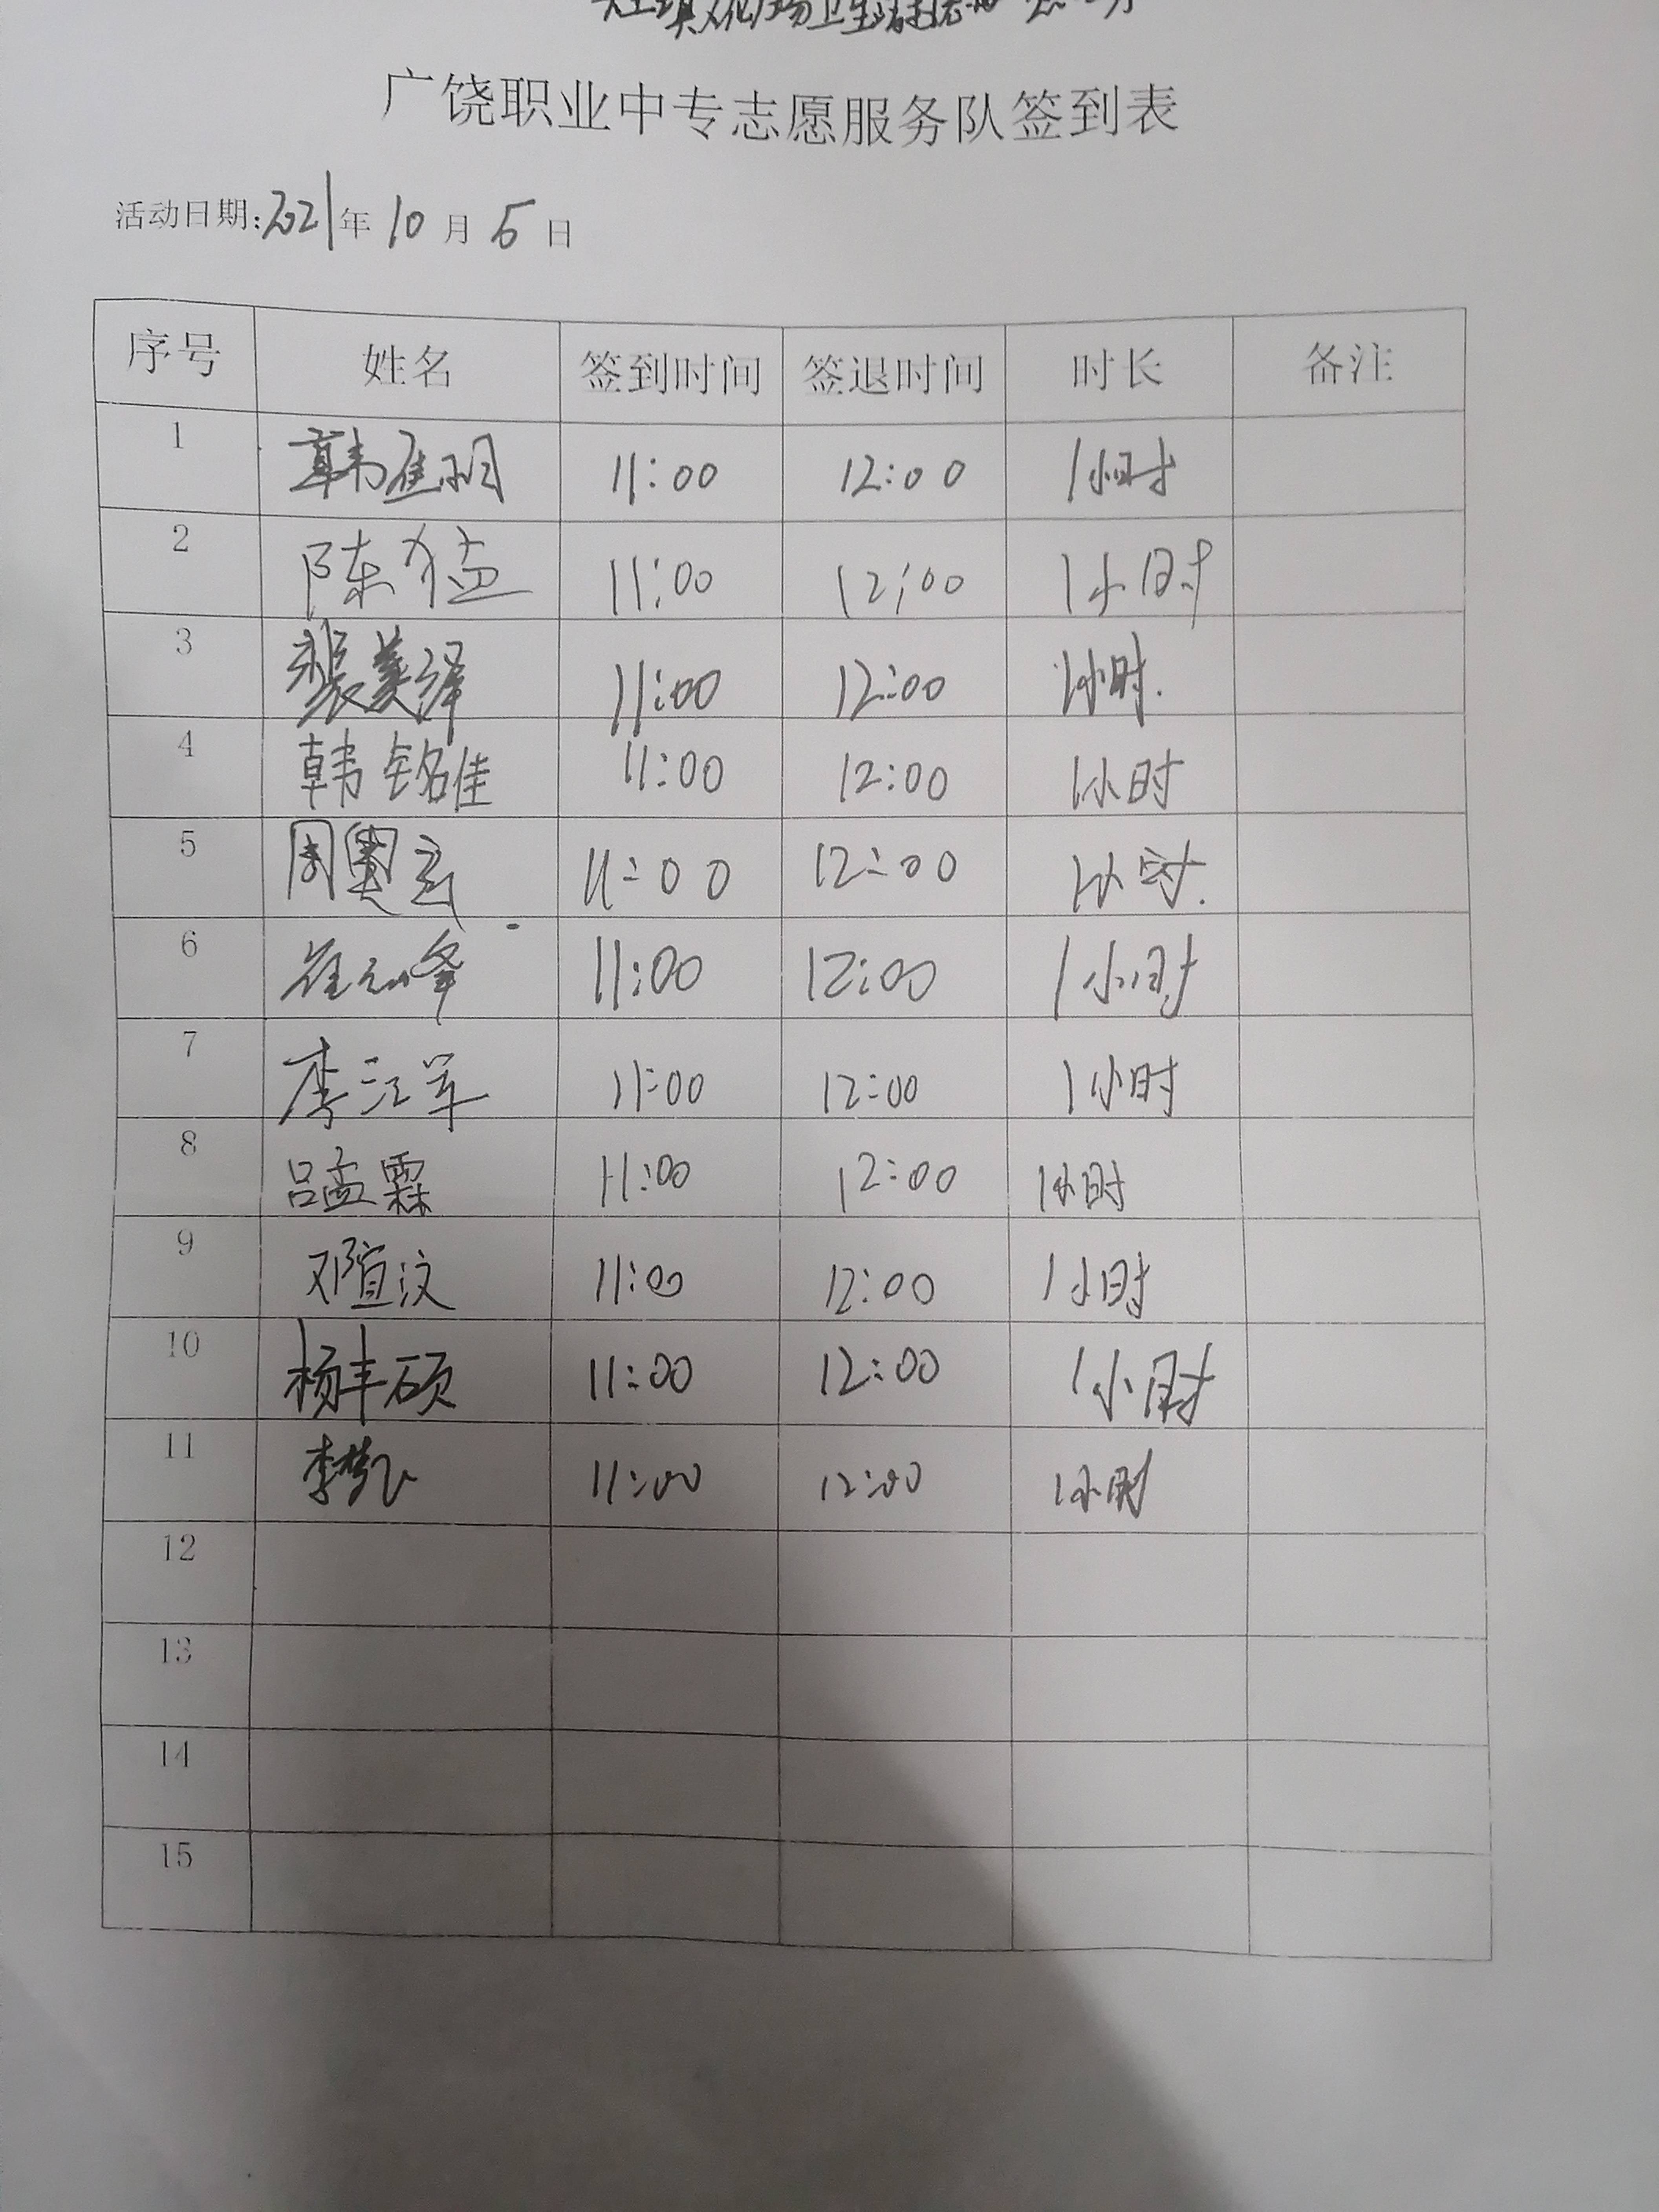 广饶职业中专志愿服务队签到表
活动日期:2021年10月5日
序号 姓名 签到时间 签退时间 时长 备注
1 韩佳明 11:00 12:00 1小时
2 陈猛 11:00 12:00 1小时
3 裴美泽 11:00 12:00 1小时.
4 韩铭佳 11:00 12:00 1小时
5 周奥 11:00 12:00 1小时.
6 崔 峰 11:00 12:00 1小时
7 李江军 11:00 12:00 1小时
8 吕孟霖 11:00 12:00 1小时
9 邓 汶 11:00 12:00 1小时
10 杨丰硕 11:00 12:00 1小时
11 李梦飞 11:00 12:00 1小时
12
13
14
15